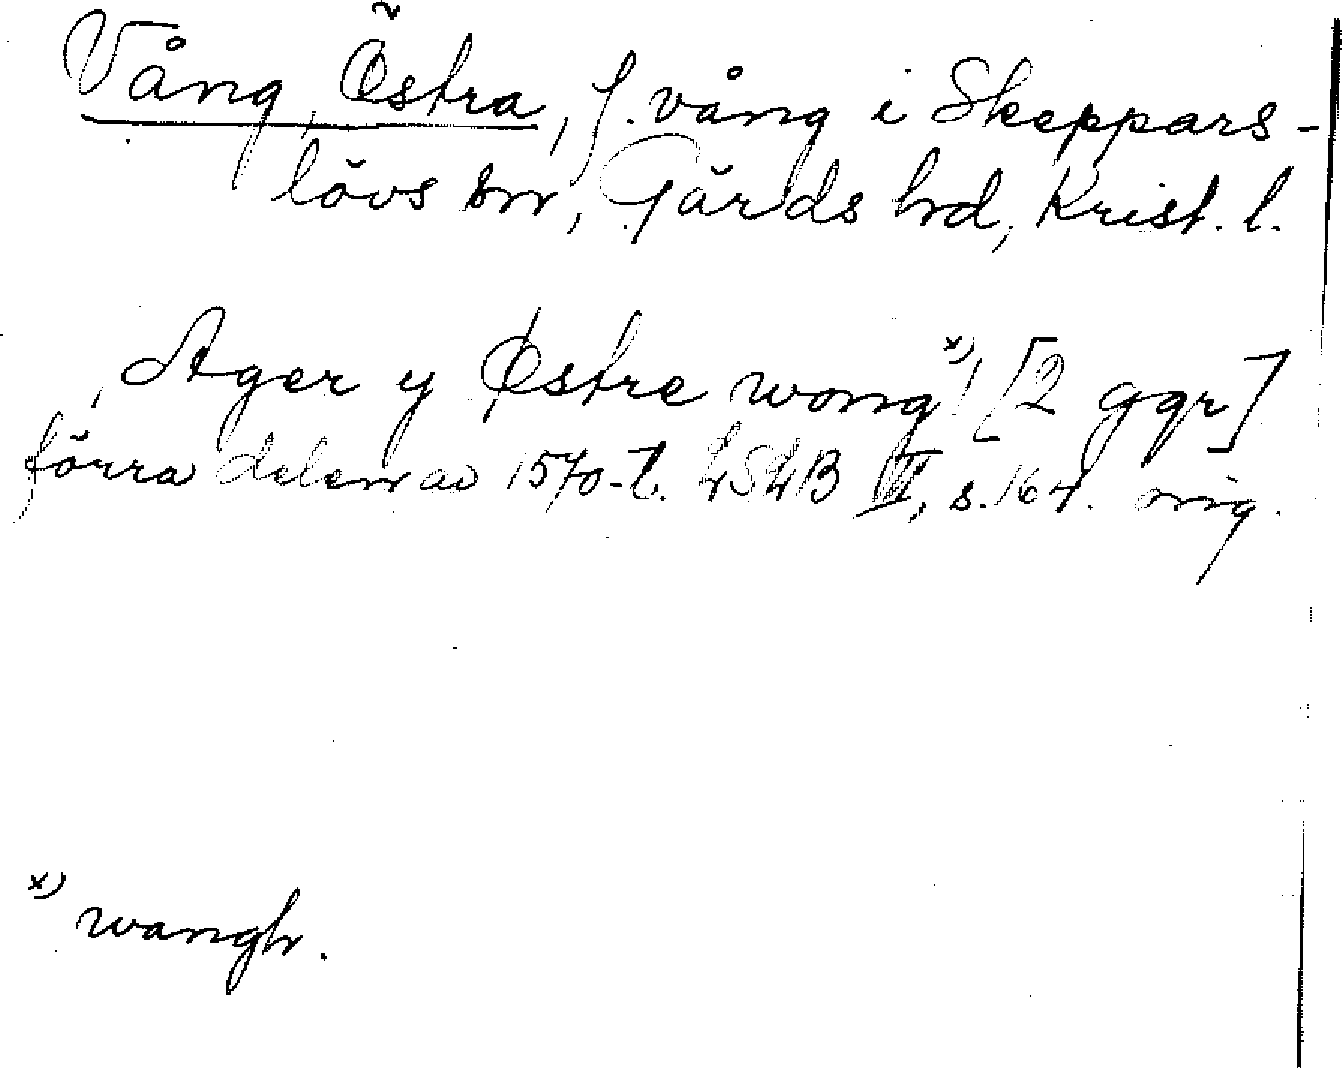 Vång, Östra, f. vång i Skeppars-
lövs sn, Gärds hd, Krist. l.
, Ager y Østre wong x) / [2 ggr]
förra delen av 1570-t. LSLB III, s. 164. orig.
x) wangh.